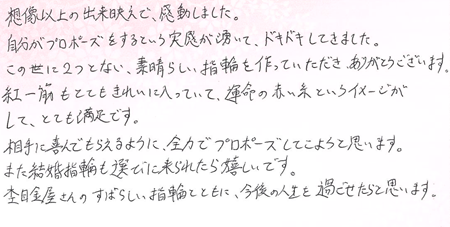 想像以上の出来映えで、感動しました。
自分がプロポーズをするという実感が湧いて、ドキドキしてきました。
この世に2つとない、素晴らしい指輪を作っていただき、ありがとうございます。
紅一筋もとてもきれいに入っていて、運命の赤い糸というイメージが
して、とても満足です。
相手に喜んでもらえるように、全力でプロポーズしてこようと思います。
また結婚指輪も選びに来られたら嬉しいです。
杢目金屋さんのすばらしい指輪とともに、今後の人生を過ごせたらと思います。